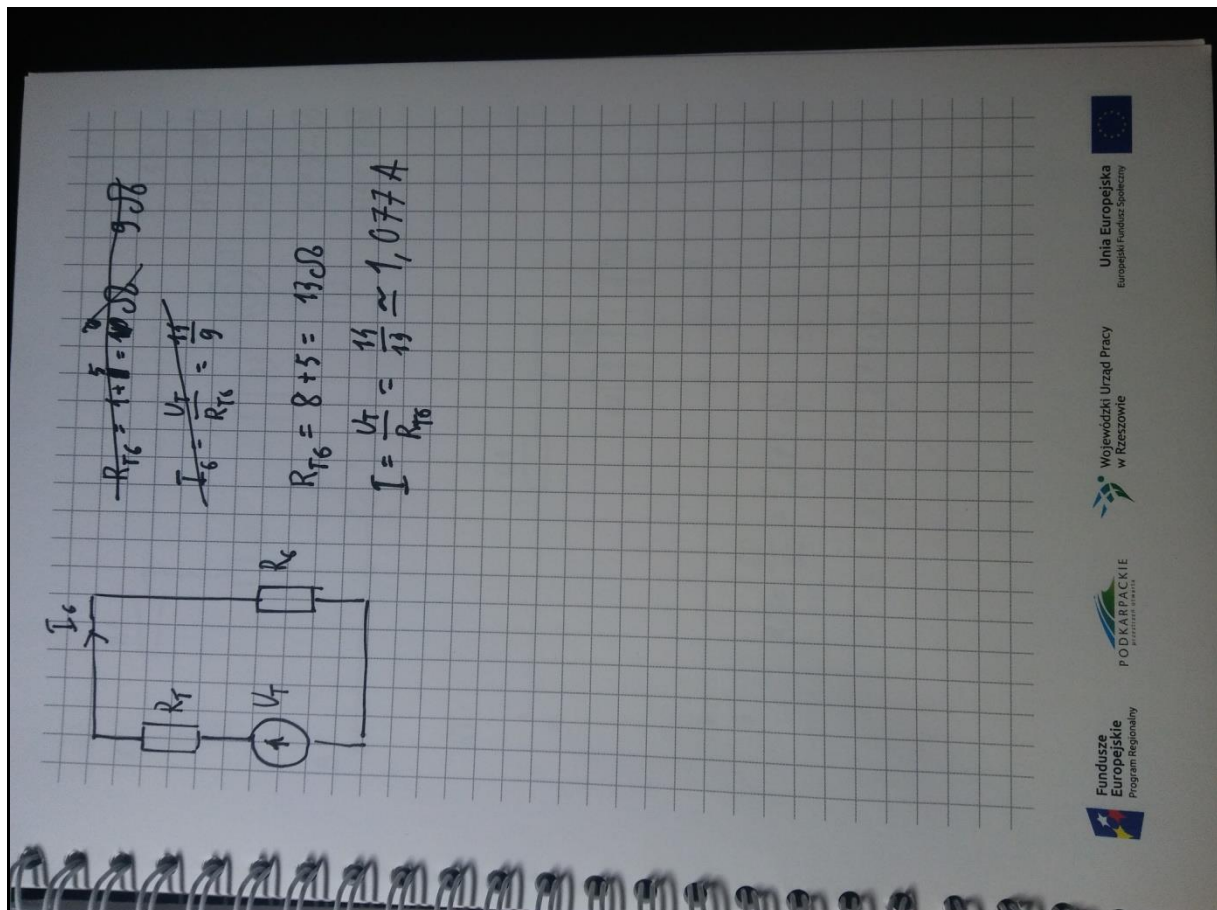 I₆
R_T
U_T
R₆
R_T6 = 4+5 = 9Ω
I₆ = U_T / R_T6 = 14 / 9
R_T6 = 8 + 5 = 13Ω
I = U_T / R_T6 = 14 / 13 ≃ 1,077 A
Fundusze
Europejskie
Program Regionalny
PODKARPACKIE
Wojewódzki Urząd Pracy
w Rzeszowie
Unia Europejska
Europejski Fundusz Społeczny